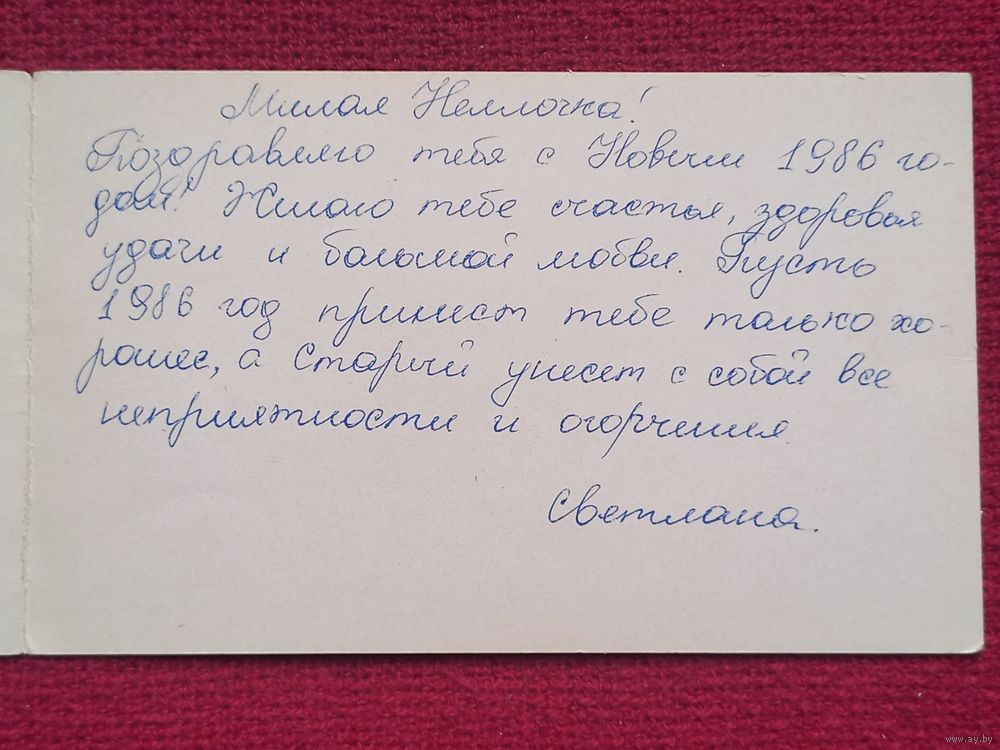 Милая Неллочка!
Поздравляю тебя с Новым 1986 го-
дом! Желаю тебе счастья, здоровья
удачи и большой любви. Пусть
1986 год принесет тебе только хо-
рошее, а старый унесет с собой все
неприятности и огорчения.
Светлана.
www.ay.by